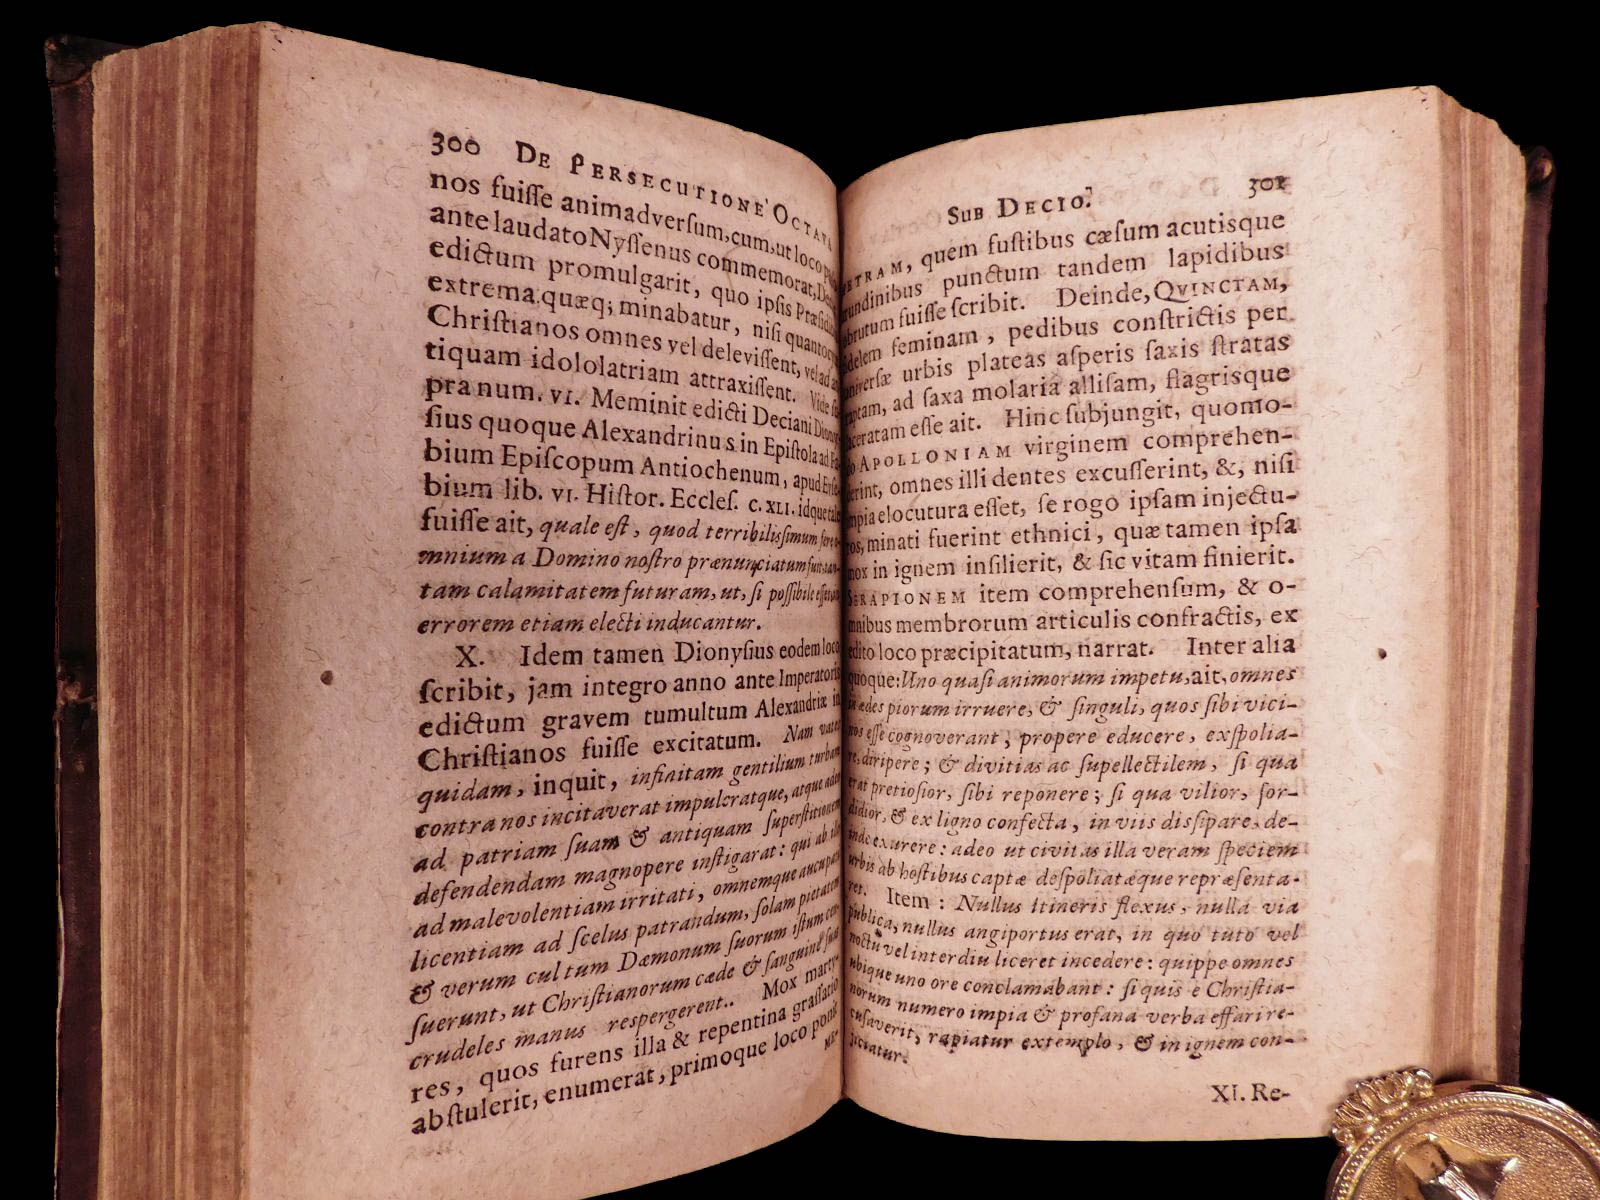 300 DE PERSECUTIONE OCTAVA
nos fuiſſe animadverſum, cum, ut loco
ante laudato Nyſſenus commemorat,
edictum promulgarit, quo ipſis Præſidi
extrema quæq; minabatur, niſi quantocy
Chriſtianos omnes vel deleviſſent, vel ad an
tiquam idololatriam attraxiſſent. Vide ſu
pra num. VI. Meminit edicti Deciani Diony
ſius quoque Alexandrinus in Epiſtola ad Fa
bium Epiſcopum Antiochenum, apud Euſe
bium lib. VI. Hiſtor. Eccleſ. c. XLI. idque tale
fuiſſe ait, quale eſt, quod terribiliſſimum fere o-
mnium a Domino noſtro prænunciatum fuit, tan-
tam calamitatem futuram, ut, ſi poſſibile eſſet, in
errorem etiam electi inducantur.
X. Idem tamen Dionyſius eodem loco
ſcribit, jam integro anno ante Imperatoris
edictum gravem tumultum Alexandriæ in
Chriſtianos fuiſſe excitatum. Nam vates
quidam, inquit, infinitam gentilium turbam
contra nos incitaverat impuleratque, atque adeo
ad patriam ſuam & antiquam ſuperſtitionem
defendendam magnopere inſtigarat: qui ab illo
ad malevolentiam irritati, omnemque aucupati
licentiam ad ſcelus patrandum, ſolam pietatem
& verum cultum Dæmonum ſuorum iſtum cen-
ſuerunt, ut Chriſtianorum cæde & ſanguine ſuas
crudeles manus reſpergerent.. Mox marty-
res, quos furens illa & repentina graſſatio
abſtulerit, enumerat, primoque loco ponit
SUB DECIO. 301
ETRAM, quem fuſtibus cæſum acutisque
undinibus punctum tandem lapidibus
obrutum fuiſſe ſcribit. Deinde, QVINCTAM,
fidelem feminam, pedibus conſtrictis per
univerſæ urbis plateas aſperis ſaxis ſtratas
raptam, ad ſaxa molaria alliſam, flagrisque
laceratam eſſe ait. Hinc ſubjungit, quomo-
do APOLLONIAM virginem comprehen-
derint, omnes illi dentes excuſſerint, &, niſi
impia elocutura eſſet, ſe rogo ipſam injectu-
ros, minati fuerint ethnici, quæ tamen ipſa
mox in ignem inſilierit, & ſic vitam finierit.
SERAPIONEM item comprehenſum, & o-
mnibus membrorum articulis confractis, ex
edito loco præcipitatum, narrat. Inter alia
quoque: Uno quaſi animorum impetu, ait, omnes
in ædes piorum irruere, & ſinguli, quos ſibi vici-
nos eſſe cognoverant, propere educere, exſpolia-
re, diripere; & divitias ac ſupellectilem, ſi qua
erat pretioſior, ſibi reponere; ſi qua vilior, ſor-
didior, & ex ligno confecta, in viis diſſipare, de-
inde exurere: adeo ut civitas illa veram ſpeciem
urbis ab hoſtibus captæ deſpoliatæque repræſenta-
ret. Item: Nullus itineris flexus, nulla via
publica, nullus angiportus erat, in quo tuto vel
noctu vel interdiu liceret incedere: quippe omnes
ubique uno ore conclamabant: ſi quis e Chriſtia-
norum numero impia & profana verba effari re-
cuſaverit, rapiatur extemplo, & in ignem con-
jiciatur.
XI. Re-